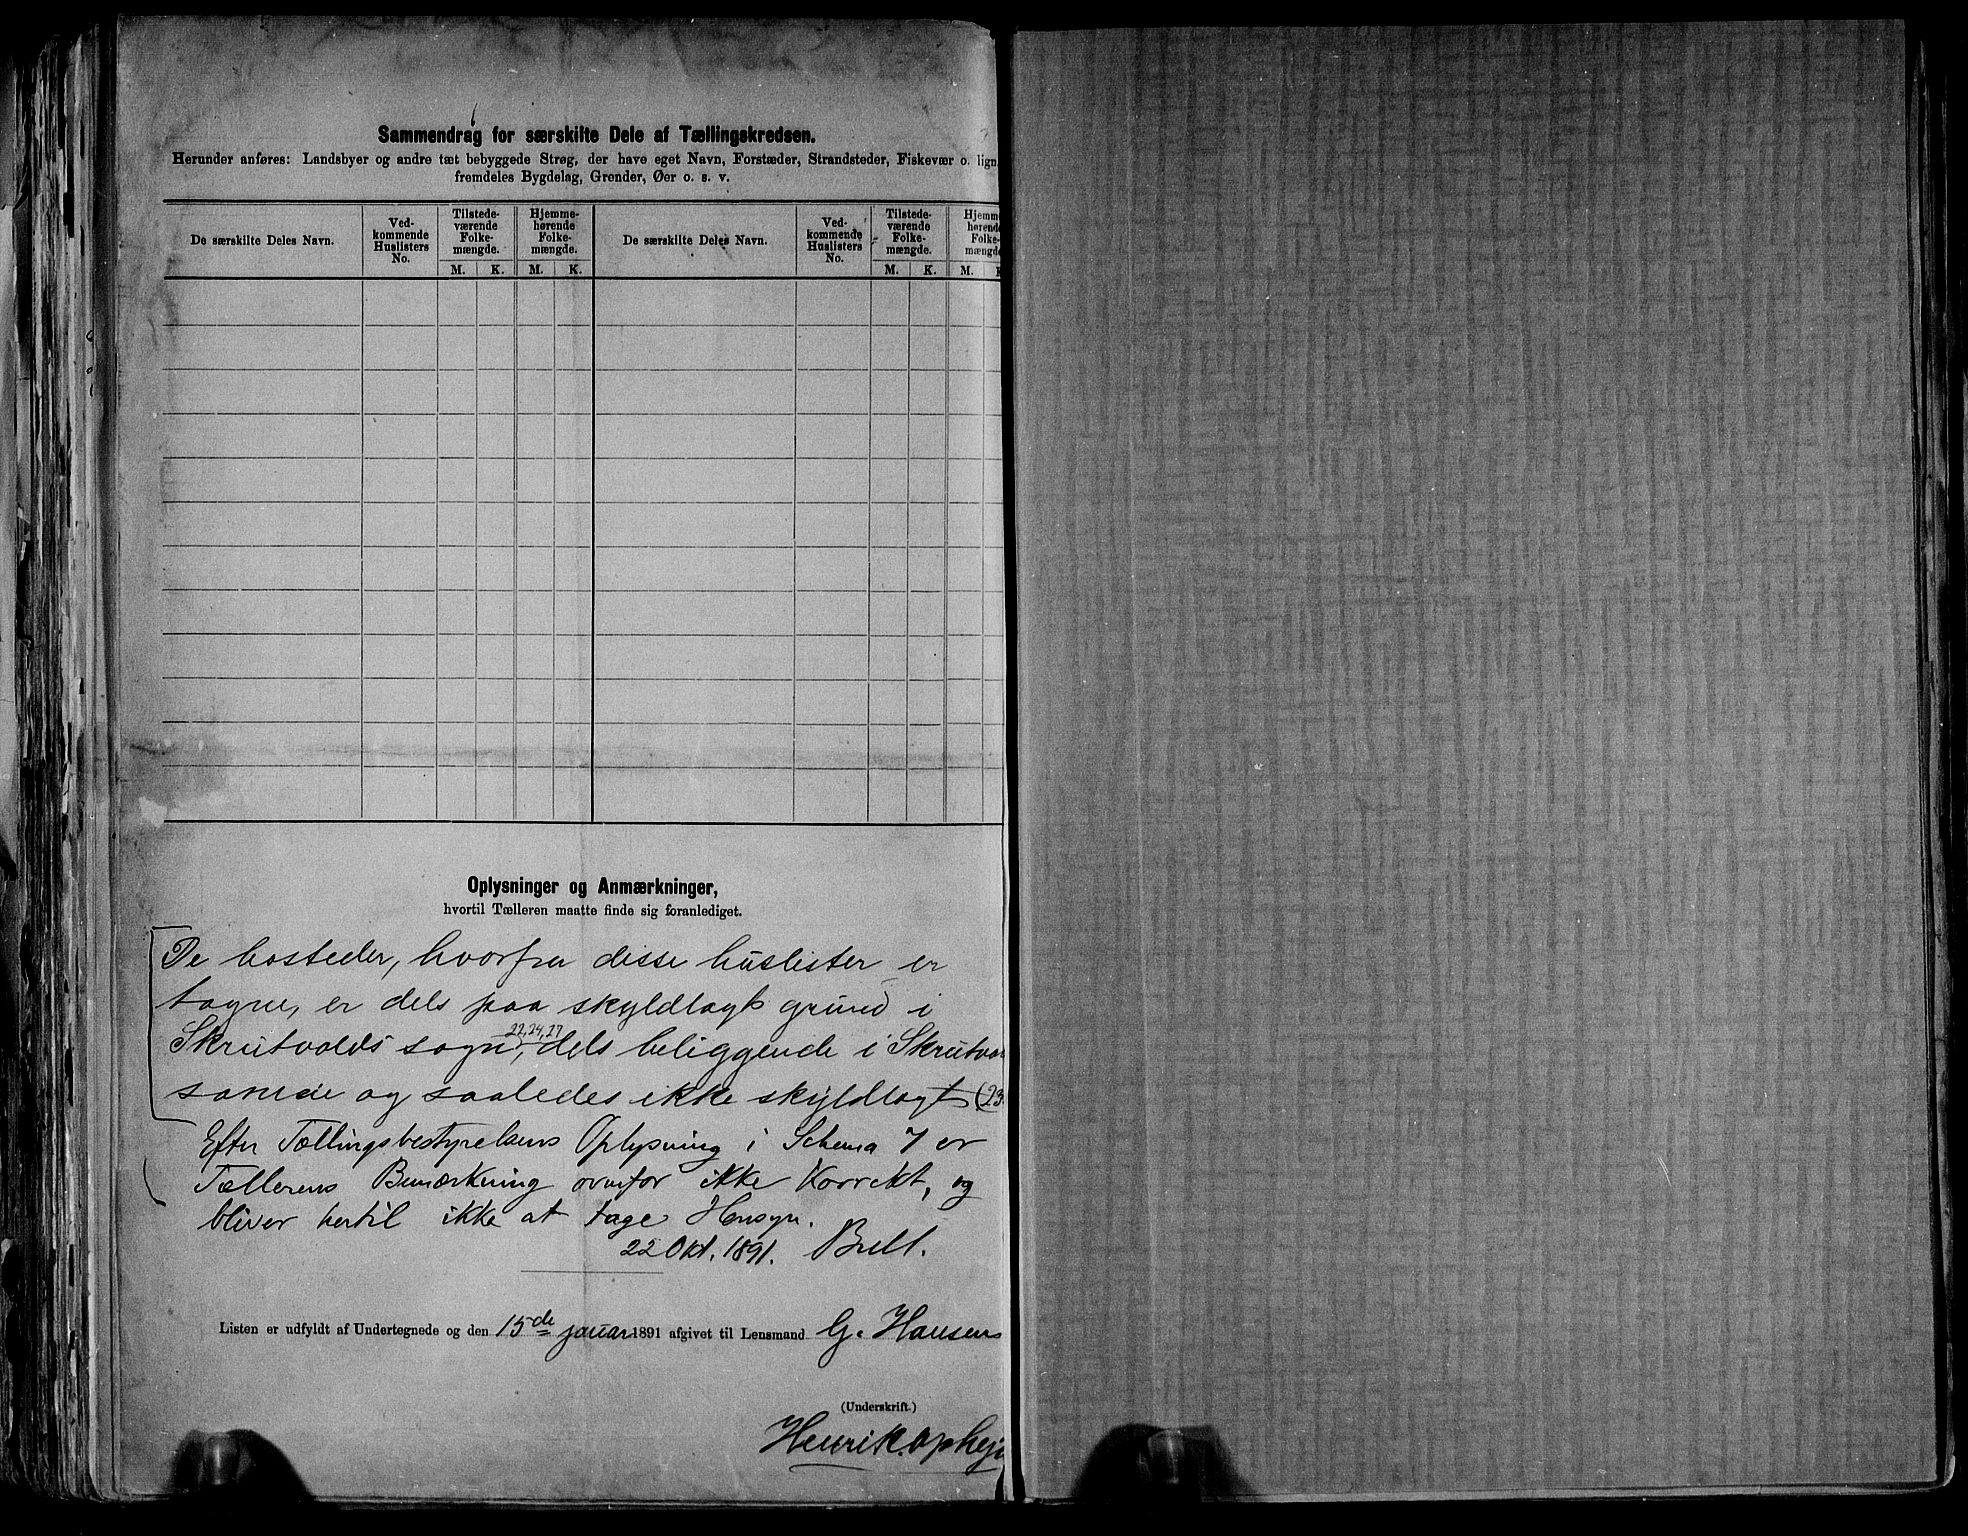 Sammendrag for særskilte Dele af Tællingskredsen.
Herunder anføres: Landsbyer og andre tæt bebyggede Strøg, der have eget Navn, Forstæder, Strandsteder, Fiskevær o. lign.
fremdeles Bygdelag, Grender, Øer o. s. v.
De særskilte Deles Navn.
Ved-
kommende
Huslisters
No.
Tilstede-
værende
Folke-
mængde.
M. K.
Hjemme-
hørende
Folke-
mængde.
M. K.
De særskilte Deles Navn.
Ved-
kommende
Huslisters
No.
Tilstede-
værende
Folke-
mængde.
M. K.
Hjemm
hørende
Folke-
mængde
M. K
Oplysninger og Anmærkninger,
hvortil Tælleren maatte finde sig foranlediget.
De bosteder, hvorfra disse huslister er
tagne, er dels paa skyldlagt grund i
22,24,27
Skrutvolds sogn, dels beliggende i Skrutvo
samme og saaledes ikke skyldlagt (23
Efter Tællingsbestyrelsens Oplysning i Schema 7 er
Tællerens Bemærkning ovenfor ikke korrekt, og
bliver hertil ikke at tage Hensyn.
22 Okt. 1891.
Listen er udfyldt af Undertegnede og den 15de januar 1891 afgivet til Lensmand G. Hansen
(Underskrift.)
Henrik Ophej